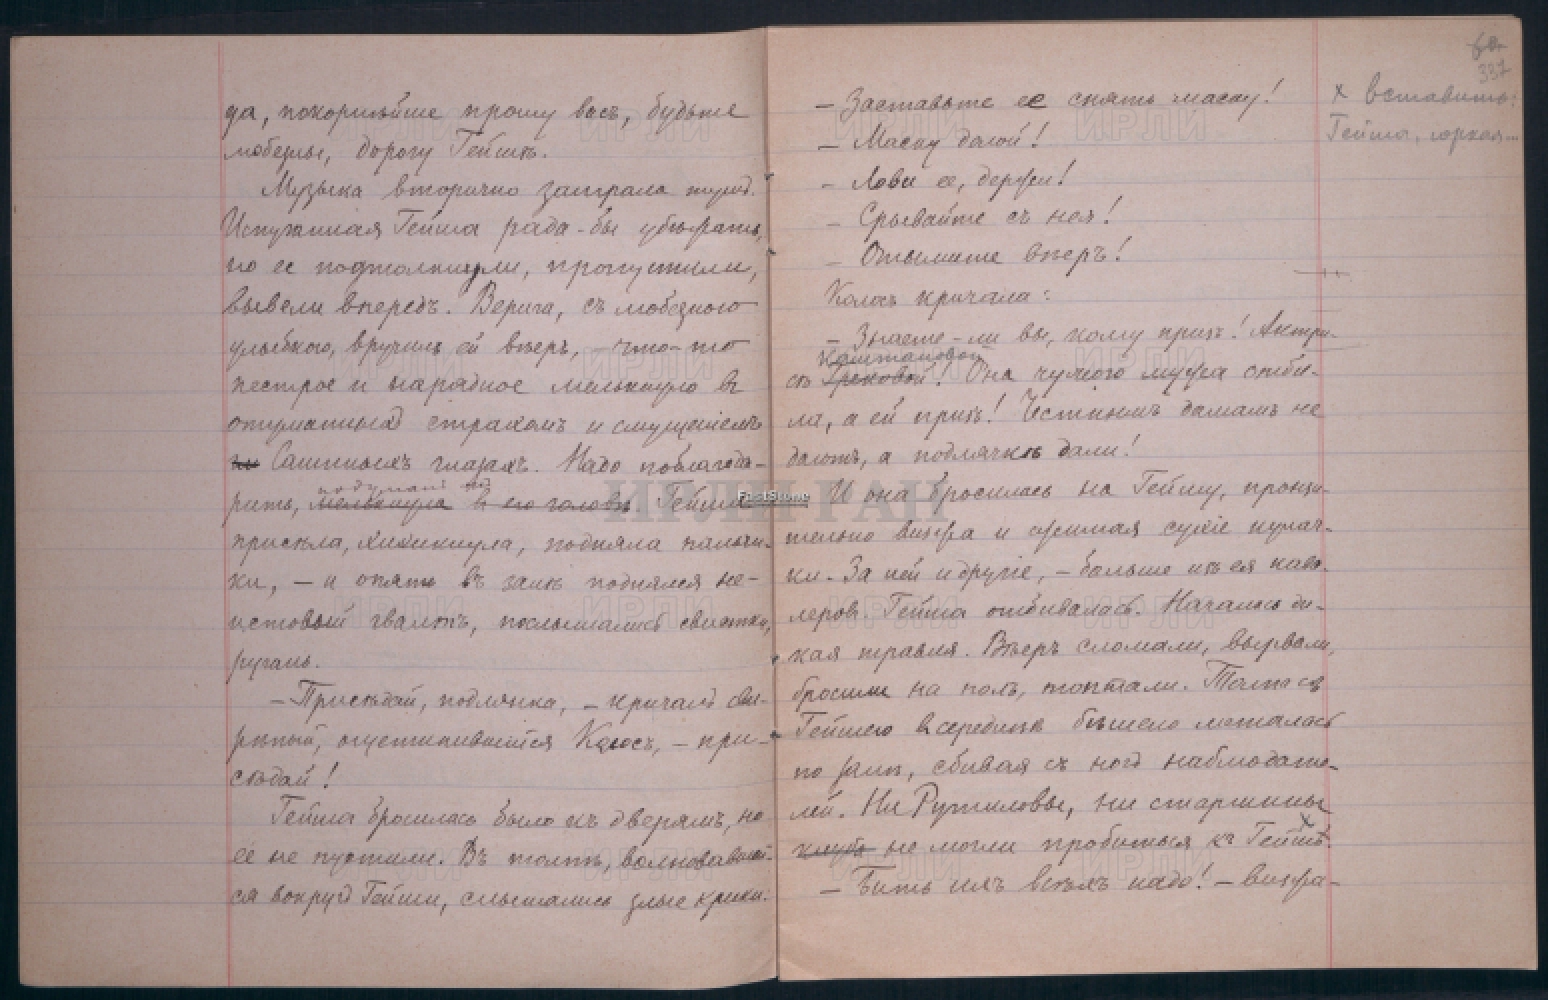 да, покорнѣйше прошу васъ, будьте
любезны, дорогу Гейшѣ.
Музыка вторично заиграла тушъ.
Испуганная Гейша рада-бы убѣжать,
но ее подтолкнули, пропустили,
вывели впередъ. Верига, съ любезною
улыбкою, вручилъ ей вѣеръ, что-то
пестрое и нарядное мелькнуло въ
отуманныхъ страхомъ и смущеніемъ
Сашиныхъ глазахъ. Надо поблагода-
подумалъ онъ
рить, мелькнула въ его головѣ. Гейша
присѣла, хихикнула, подняла пальчи-
ки, – и опять въ залѣ поднялся не-
истовый гвалтъ, послышались свистки,
ругань.
– Присѣдай, подлянка, – кричалъ сви-
рѣпый, ощетинившійся Колосъ, – при-
сѣдай!
Гейша бросилась было къ дверямъ, но
ее не пустили. Въ толпѣ, волновавшей-
ся вокругъ Гейши, слышались злые крики:
– Заставьте ее снять маску!
– Маску долой!
– Лови ее, держи!
– Срывайте съ нея!
– Отымите вѣеръ!
Колосъ кричала:
– Знаете-ли вы, кому призъ! Актри-
Каштановой
сѣ Грековой! Она чужого мужа отби-
ла, а ей призъ! Честнымъ дамамъ не
даютъ, а подлячкѣ дали!
И она бросилась на Гейшу, пронзи-
тельно визжа и сжимая сухіе кулач-
ки. За ней и другіе, – больше изъ ея кава-
леровъ. Гейша отбивалась. Началась ди-
кая травля. Вѣеръ сломали, вырвали,
бросили на полъ, топтали. Толпа съ
Гейшею въ серединѣ бѣшено металась
по залѣ, сбивая съ ногъ наблюдате-
лей. Ни Рутиловы, ни старшины
клуба не могли пробиться къ Гейшѣ.
х
– Бить ихъ всѣхъ надо! – визжа-
х вставить:
Гейша, юркая...
60
337
ИРЛИ РАН
ИРЛИ
FastStone